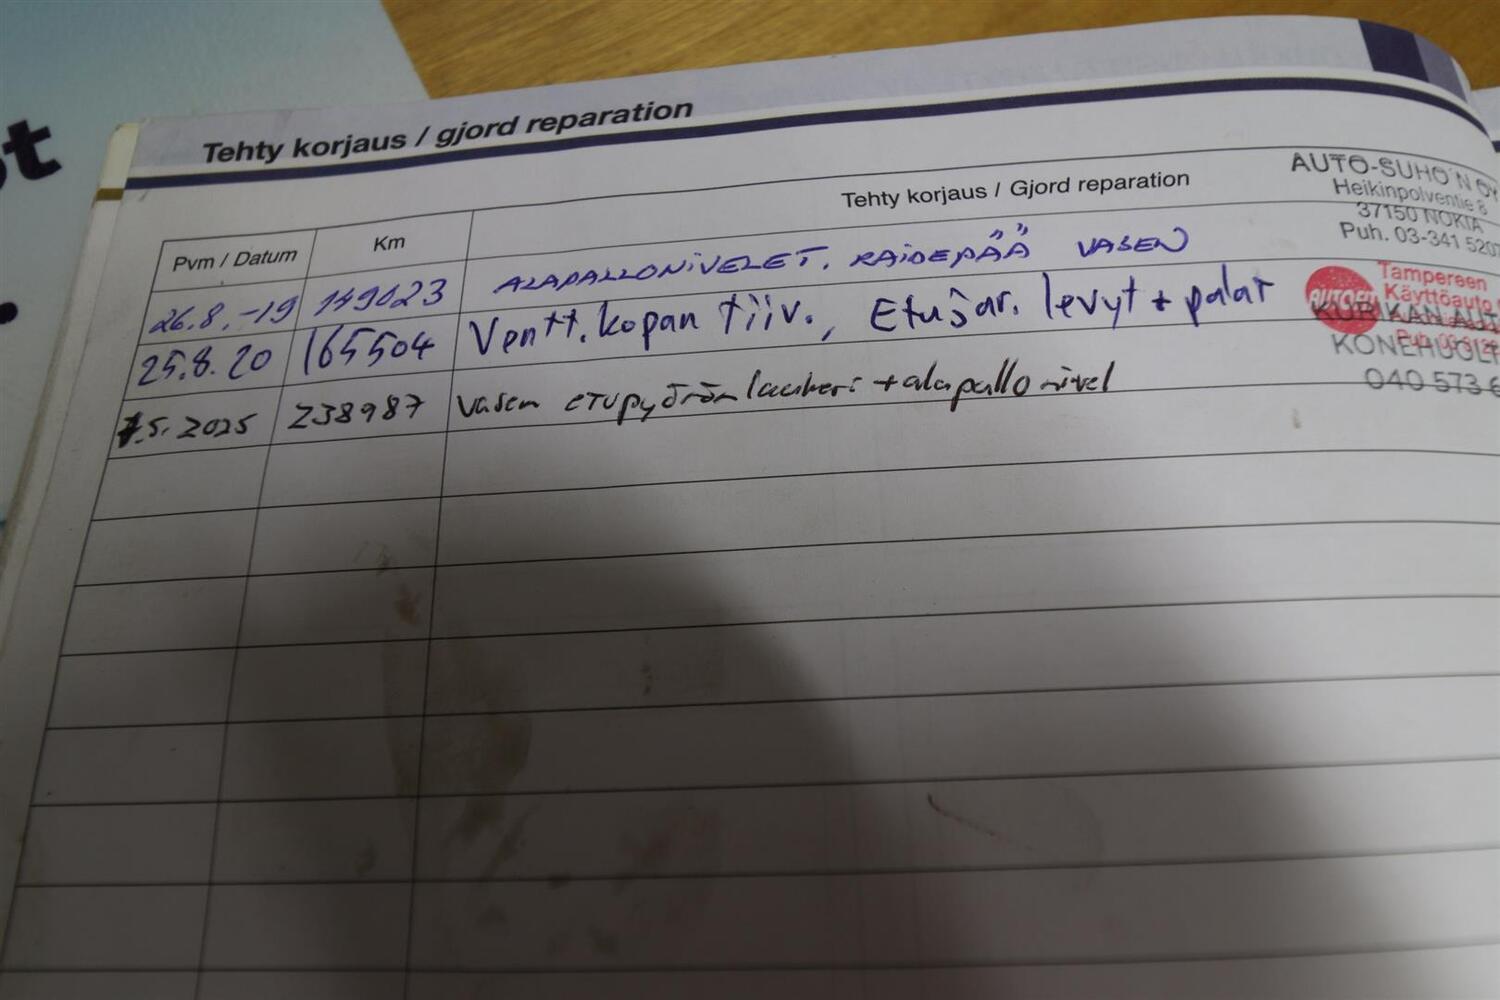 t
Tehty korjaus / gjord reparation
Pvm / Datum
Km
Tehty korjaus / Gjord reparation
AUTO-SUHO'N OY
Heikinpolventie 8
37150 NOKIA
Puh. 03-341 520
26.8.-19 149023 ALAPALLONIVELET, RAIDEPÄÄ VASEN
25.8.20 165504 Ventt. kopan tiiv., Etujar. levyt + palat
Tampereen
Käyttöauto
KURIKAN AUT
KONEHUOLT
040 573 6
.5. 2025 238987 vasen etupyörän laakeri + alapallonivel